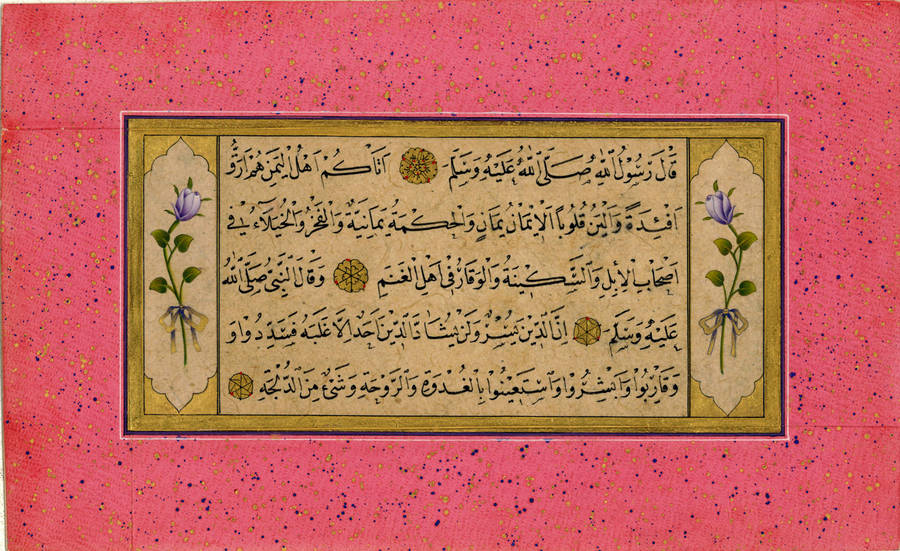 قَالَ رَسُولُ اللهِ صَلَّى اللهُ عَلَيْهِ وَسَلَّمَ اَتَاكُمْ اَهْلُ الْيَمَنِ هُمْ اَرَقُّ
اَفْئِدَةً وَاَلْيَنُ قُلُوبًا اَلْاِيمَانُ يَمَانٍ وَالْحِكْمَةُ يَمَانِيَّةٌ وَالْفَخْرُ وَالْخُيَلَاءُ فِي
اَصْحَابِ الْاِبِلِ وَالسَّكِينَةُ وَالْوَقَارُ فِي اَهْلِ الْغَنَمِ وَقَالَ النَّبِيُّ صَلَّى اللهُ
عَلَيْهِ وَسَلَّمَ اِنَّ الدِّينَ يُسْرٌ وَلَنْ يُشَادَّ الدِّينَ اَحَدٌ اِلَّا غَلَبَهُ فَسَدِّدُوا وَ
وَقَارِبُوا وَاَبْشِرُوا وَاسْتَعِينُوا بِالْغُدْوَةِ وَالرَّوْحَةِ وَشَيْءٍ مِنَ الدُّلْجَةِ